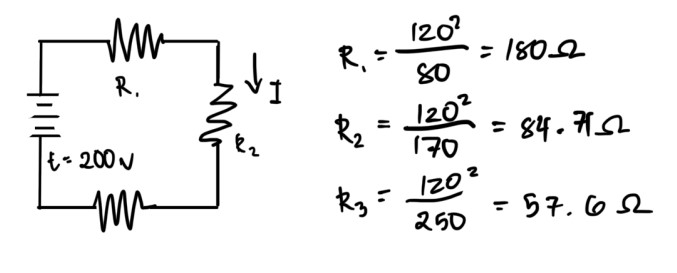 R₁
I
R₂
E = 200 V
R₁ = 120² / 80 = 180 Ω
R₂ = 120² / 170 = 84.71 Ω
R₃ = 120² / 250 = 57.6 Ω